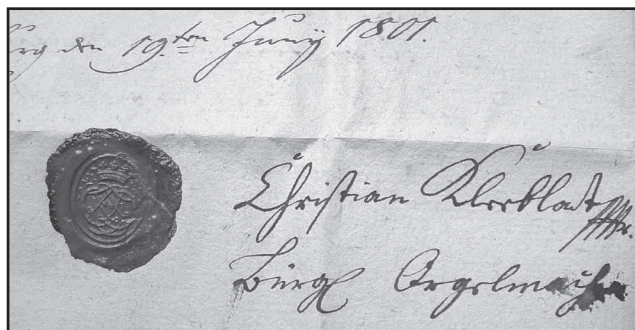 rg den 19.ten Juny 1801.
Christian Kleeblatt
Bürgl Orgelmacher